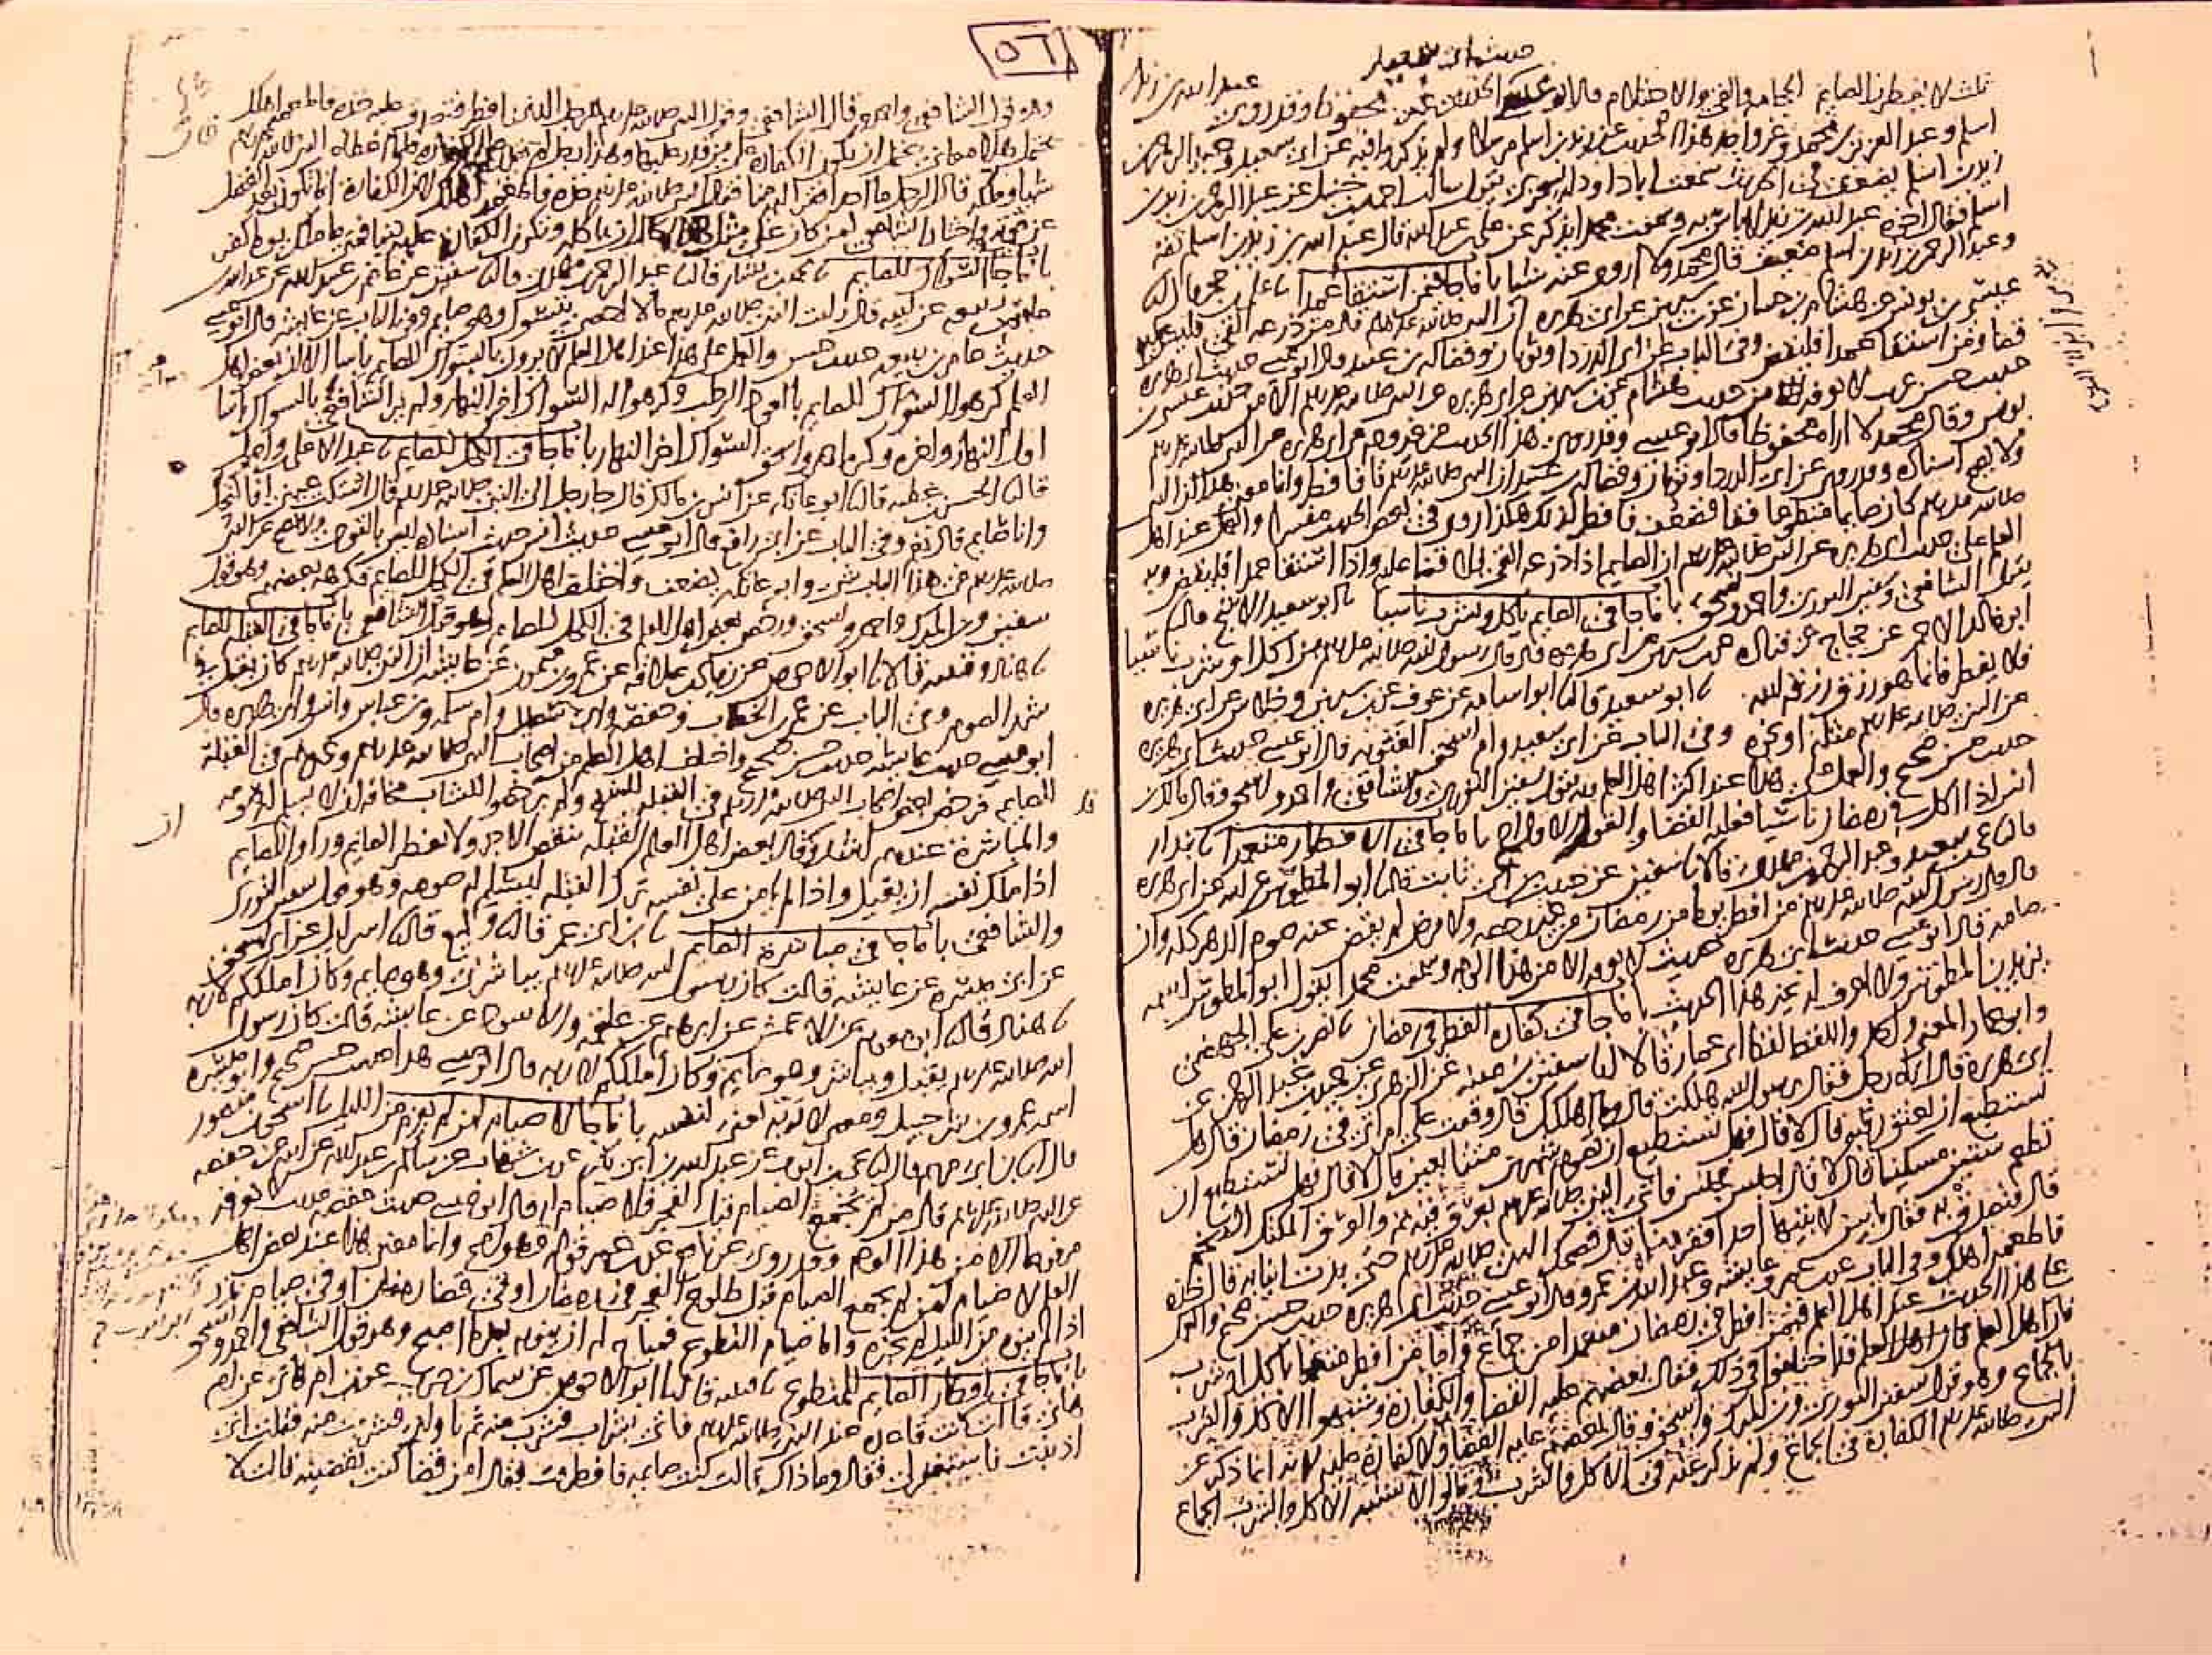 ثلث لا يفطرن الصايم الحجامه والقي والاحتلام قال ابو عيسى غير محفوظ وقد روى عبد الله بن زيد بن
اسلم وعبد العزيز بن محمد وغير واحد هذا الحديث عن زيد بن اسلم مرسلا ولم يذكروا فيه عن ابي سعيد وعبد الرحمن بن
زيد بن اسلم يضعف في الحديث سمعت ابا داود السجزي يقول سالت احمد بن حنبل عن عبد الرحمن بن زيد بن
اسلم فقال اخوه عبد الله بن زيد لا باس به وسمعت محمدا يذكر عن علي بن عبد الله قال عبد الله بن زيد بن اسلم ثقه
وعبد الرحمن بن زيد بن اسلم ضعيف قال محمد ولا اروي عنه شيا باب ما جا فيمن استقا عمدا علي بن حجر قال
عيسى بن يونس عن هشام بن حسان عن بن سيرين عن ابي هريره ان النبي صلى الله عليه وسلم قال من ذرعه القي فليس عليه
قضا ومن استقا عمدا فليقض وفي الباب عن ابي الدردا وثوبان وفضاله بن عبيد قال ابو عيسى حديث ابي هريره
حديث حسن غريب لا نعرفه من حديث هشام عن بن سيرين عن ابي هريره عن النبي صلى الله عليه وسلم الا من حديث عيسى بن
يونس وقال محمد لا اراه محفوظا قال ابو عيسى وقد روي هذا الحديث من غير وجه عن ابي هريره عن النبي صلى الله عليه وسلم
ولا يصح اسناده وقد روي عن ابي الدردا وثوبان وفضاله بن عبيد ان النبي صلى الله عليه وسلم قا فافطر وانما معنى هذا ان النبي
صلى الله عليه وسلم كان صايما متطوعا فقا فضعف فافطر لذلك هكذا روي في بعض الحديث مفسرا والعمل عند اهل
العلم على حديث ابي هريره عن النبي صلى الله عليه وسلم ان الصايم اذا ذرعه القي فلا قضا عليه واذا استقا عمدا فليقض وبه
يقول الشافعي وسفين الثوري واحمد واسحق باب ما جا في الصايم ياكل ويشرب ناسيا ابو سعيد الاشج قال
ابو خالد الاحمر عن حجاج عن قتاده عن بن سيرين عن ابي هريره قال قال رسول الله صلى الله عليه وسلم من اكل او شرب ناسيا
فلا يفطر فانما هو رزق رزقه الله ابو سعيد قال ابو اسامه عن عوف عن بن سيرين وخلاس عن ابي هريره
عن النبي صلى الله عليه وسلم مثله او نحوه وفي الباب عن ابي سعيد وام اسحق الغنويه قال ابو عيسى حديث ابي هريره
حديث حسن صحيح والعمل على هذا عند اكثر اهل العلم وبه يقول سفين الثوري والشافعي واحمد واسحق وقال مالك بن
انس اذا اكل في رمضان ناسيا فعليه القضا والقول الاول اصح باب ما جا في الافطار متعمدا بندار
قال يحيى بن سعيد وعبد الرحمن بن مهدي قالا سفين عن حبيب بن ابي ثابت قال ابو المطوس عن ابيه عن ابي هريره
قال قال رسول الله صلى الله عليه وسلم من افطر يوما من رمضان من غير رخصه ولا مرض لم يقض عنه صوم الدهر كله وان
صامه قال ابو عيسى حديث ابي هريره حديث لا نعرفه الا من هذا الوجه وسمعت محمدا يقول ابو المطوس اسمه
يزيد بن المطوس ولا اعرف له غير هذا الحديث باب ما جا في كفارة الفطر في رمضان نصر بن علي الجهضمي
وابو عمار المعنى واحد واللفظ لفظ ابي عمار قالا سفين بن عيينه عن الزهري عن حميد بن عبد الرحمن عن
ابي هريرة قال اتاه رجل فقال يا رسول الله هلكت قال وما اهلكك قال وقعت على امراتي في رمضان قال هل
تستطيع ان تعتق رقبه قال لا قال فهل تستطيع ان تصوم شهرين متتابعين قال لا قال فهل تستطيع ان
تطعم ستين مسكينا قال لا قال اجلس فجلس فاتي النبي صلى الله عليه وسلم بعرق فيه تمر والعرق المكتل الضخم
قال فتصدق به فقال ما بين لابتيها احد افقر منا قال فضحك النبي صلى الله عليه وسلم حتى بدت انيابه قال خذه
فاطعمه اهلك وفي الباب عن بن عمر وعايشه وعبد الله بن عمرو قال ابو عيسى حديث ابي هريره حديث حسن صحيح والعمل
على هذا الحديث عند اهل العلم فيمن افطر في رمضان متعمدا من جماع واما من افطر متعمدا باكل او شرب
فان اهل العلم قد اختلفوا في ذلك فقال بعضهم عليه القضا والكفارة وشبهوا الاكل والشرب
بالجماع وهو قول سفين الثوري وبن المبرك واسحق وقال بعضهم عليه القضا ولا كفارة عليه لانه انما ذكر عن
النبي صلى الله عليه وسلم الكفارة في الجماع ولم يذكر عنه في الاكل والشرب وقالوا لا يشبه الاكل والشرب الجماع
٥٦
وهو قول الشافعي واحمد قال الشافعي وقول النبي صلى الله عليه وسلم للرجل الذي افطر فتصدق عليه خذه فاطعمه اهلك
يحتمل هذا معاني يحتمل ان تكون الكفارة على من قدر عليها وهذا رجل لم يقدر على الكفارة فلما اعطاه النبي صلى الله عليه وسلم
شيا وملكه قال الرجل ما احد افقر اليه منا فقال النبي صلى الله عليه وسلم خذه فاطعمه اهلك لان الكفارة انما تكون بعد الفضل
عن قوته واختار الشافعي لمن كان على مثل هذا الحال ان ياكله وتكون الكفارة عليه دينا فمتى ما ملك يوما كفر
باب ما جا السواك للصايم محمد بن بشار قال عبد الرحمن بن مهدي قال سفين عن عاصم بن عبيد الله عن عبد الله بن
عامر بن ربيعه عن ابيه قال رايت النبي صلى الله عليه وسلم ما لا احصي يتسوك وهو صايم وفي الباب عن عايشه قال ابو عيسى
حديث عامر بن ربيعه حديث حسن والعمل على هذا عند اهل العلم لا يرون بالسواك للصايم باسا الا ان بعض اهل
العلم كرهوا السواك للصايم بالعود الرطب وكرهوا له السواك اخر النهار ولم ير الشافعي بالسواك باسا
اول النهار واخره وكره احمد واسحق السواك اخر النهار باب ما جا في الكحل للصايم عبد الاعلى بن واصل
قال الحسن بن عطيه قال ابو عاتكه عن انس بن مالك قال جا رجل الى النبي صلى الله عليه وسلم قال اشتكت عيني افاكتحل
وانا صايم قال نعم وفي الباب عن ابي رافع قال ابو عيسى حديث انس حديث اسناده ليس بالقوي ولا يصح عن النبي
صلى الله عليه وسلم في هذا الباب شي وابو عاتكه يضعف واختلف اهل العلم في الكحل للصايم فكرهه بعضهم وهو قول
سفين وبن المبرك واحمد واسحق ورخص بعض اهل العلم في الكحل للصايم وهو قول الشافعي باب ما جا في القبله للصايم
هناد وقتيبه قالا ابو الاحوص عن زياد بن علاقه عن عمرو بن ميمون عن عايشه ان النبي صلى الله عليه وسلم كان يقبل في
شهر الصوم وفي الباب عن عمر بن الخطاب وحفصه وابي سعيد وام سلمه وبن عباس وانس وابي هريره قال
ابو عيسى حديث عايشه حديث حسن صحيح واختلف اهل العلم من اصحاب النبي صلى الله عليه وسلم وغيرهم في القبلة
للصايم فرخص بعض اصحاب النبي صلى الله عليه وسلم في القبله للشيخ ولم يرخصوا للشاب مخافة ان لا يسلم له صومه
والمباشرة عندهم اشد وقد قال بعض اهل العلم القبله تنقص الاجر ولا تفطر الصايم وراوا ان للصايم
اذا ملك نفسه ان يقبل واذا لم يامن على نفسه ترك القبله ليسلم له صومه وهو قول سفين الثوري
والشافعي باب ما جا في مباشرة الصايم بن ابي عمر قال وكيع قال اسرايل عن ابي اسحق
عن ابي ميسره عن عايشه قالت كان رسول الله صلى الله عليه وسلم يباشرني وهو صايم وكان املككم لاربه
هناد قال ابو معويه عن الاعمش عن ابرهيم عن علقمه والاسود عن عايشه قالت كان رسول
الله صلى الله عليه وسلم يقبل ويباشر وهو صايم وكان املككم لاربه قال ابو عيسى هذا حديث حسن صحيح وابو ميسره
اسمه عمرو بن شرحبيل ومعنى لاربه يعني لنفسه باب ما جا لا صيام لمن لم يعزم من الليل اسحق بن منصور
قال بن ابي مريم قال يحيى بن ايوب عن عبد الله بن ابي بكر عن بن شهاب عن سالم بن عبد الله عن ابيه عن حفصه
عن النبي صلى الله عليه وسلم قال من لم يجمع الصيام قبل الفجر فلا صيام له قال ابو عيسى حديث حفصه حديث لا نعرفه
مرفوعا الا من هذا الوجه وقد روي عن نافع عن بن عمر قوله وهو اصح وانما معنى هذا عند بعض اهل
العلم لا صيام لمن لم يجمع الصيام قبل طلوع الفجر في رمضان او في قضا رمضان او في صيام نذر
اذا لم ينوه من الليل لم يجزه واما صيام التطوع فمباح له ان ينويه بعد ما اصبح وهو قول الشافعي واحمد واسحق
باب ما جا في افطار الصايم المتطوع قتيبه قال ابو الاحوص عن سماك بن حرب عن بن ام هاني عن ام
هاني قالت كنت قاعده عند النبي صلى الله عليه وسلم فاتي بشراب فشرب منه ثم ناولني فشربت منه فقلت اني
اذنبت فاستغفر لي فقال وما ذاك قالت كنت صايمه فافطرت فقال امن قضا كنت تقضينه قالت لا